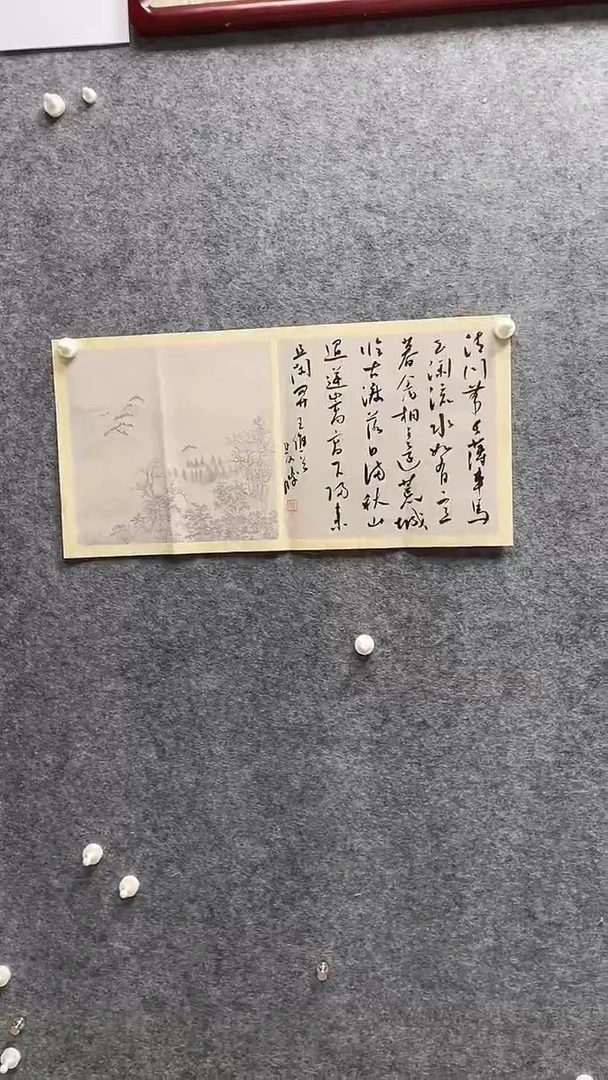 清川帶长薄車馬
去闲流水如有意
暮禽相与还荒城
临古渡落日满秋山
迢递嵩高下归来
且闭关王维诗